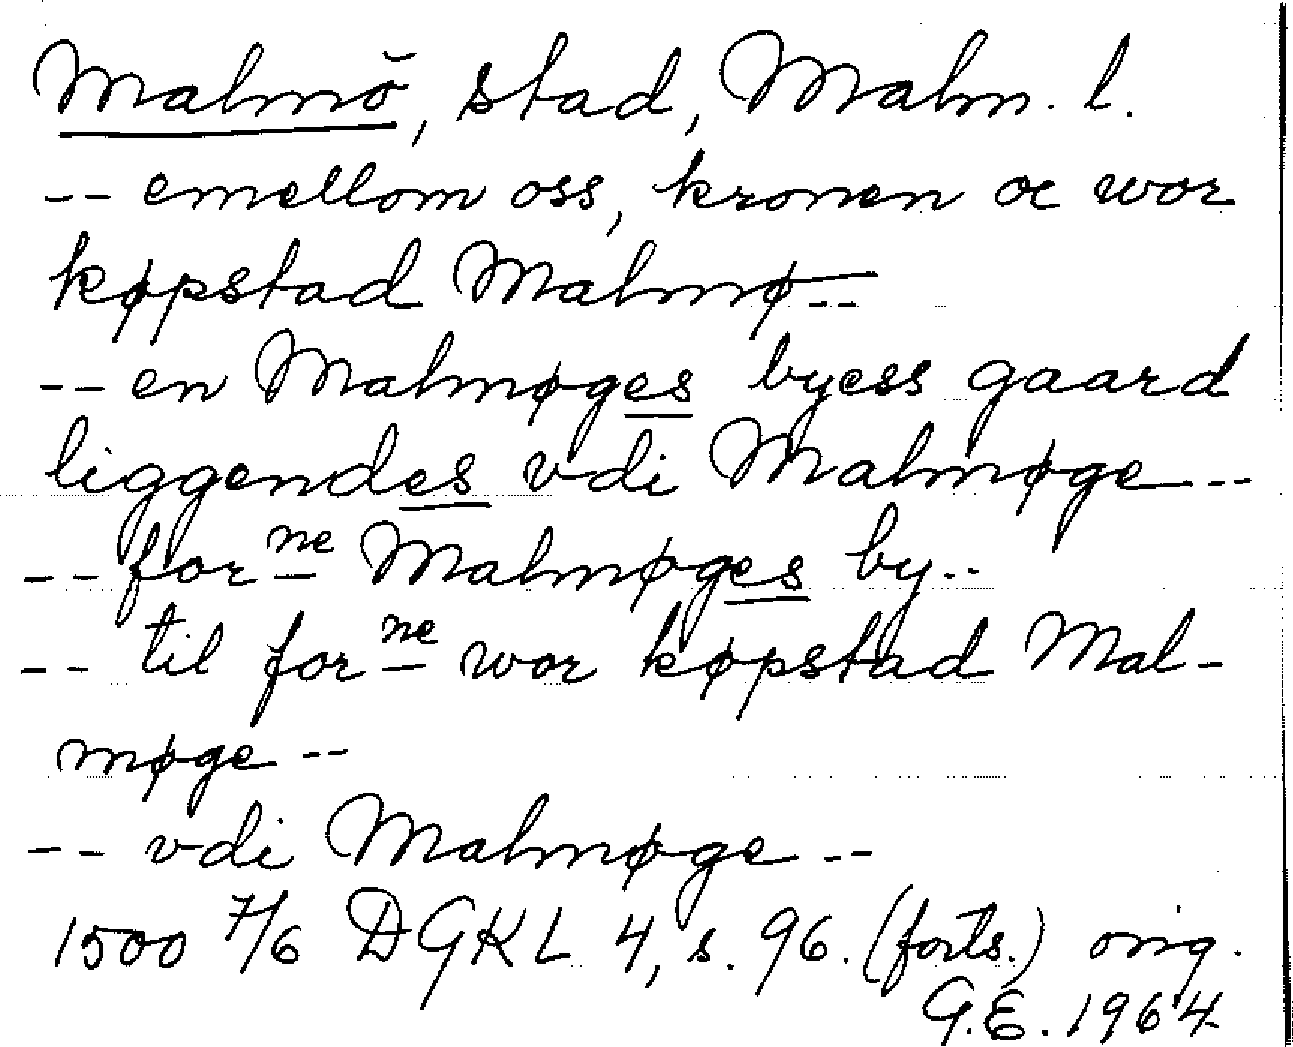 Malmö, stad, Malm. l.
-- emellom oss, kronen oc wor
køpstad Malmø --
-- en Malmøges byess gaard
liggendes vdi Malmøge --
-- for ne Malmøges by --
-- til for ne wor køpstad Mal-
møge --
-- vdi Malmøge --
1500 7/6 DGKL 4, s. 96. (forts.) orig.
G.E. 1964